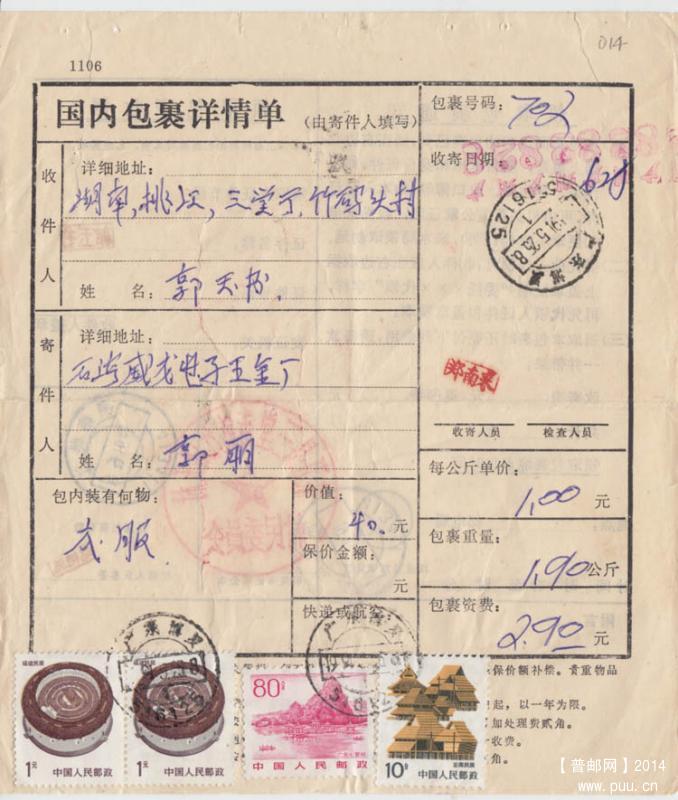 014
1106
国内包裹详情单
(由寄件人填写)
包裹号码:
702
收寄日期:
收件人
详细地址:
湖南,桃江,三堂丁,竹码头村
姓 名:
寄件人
详细地址:
石湾威龙电子五金厂
姓 名:
郭丽
收寄人员
检查人员
包内装有何物:
衣服
价值:
40. 元
保价金额:
元
快递或航空
每公斤单价:
1.00 元
包裹重量:
1.90 公斤
包裹资费:
2.90 元
广东博罗
保价额补偿。贵重物品
起,以一年为限。
加处理费贰角。
收费。
角。
福建民居
1元
中国人民邮政
福建民居
1元
中国人民邮政
80分
中国人民邮政
10分
云南民居
中国人民邮政
【普邮网】2014
www.puu.cn